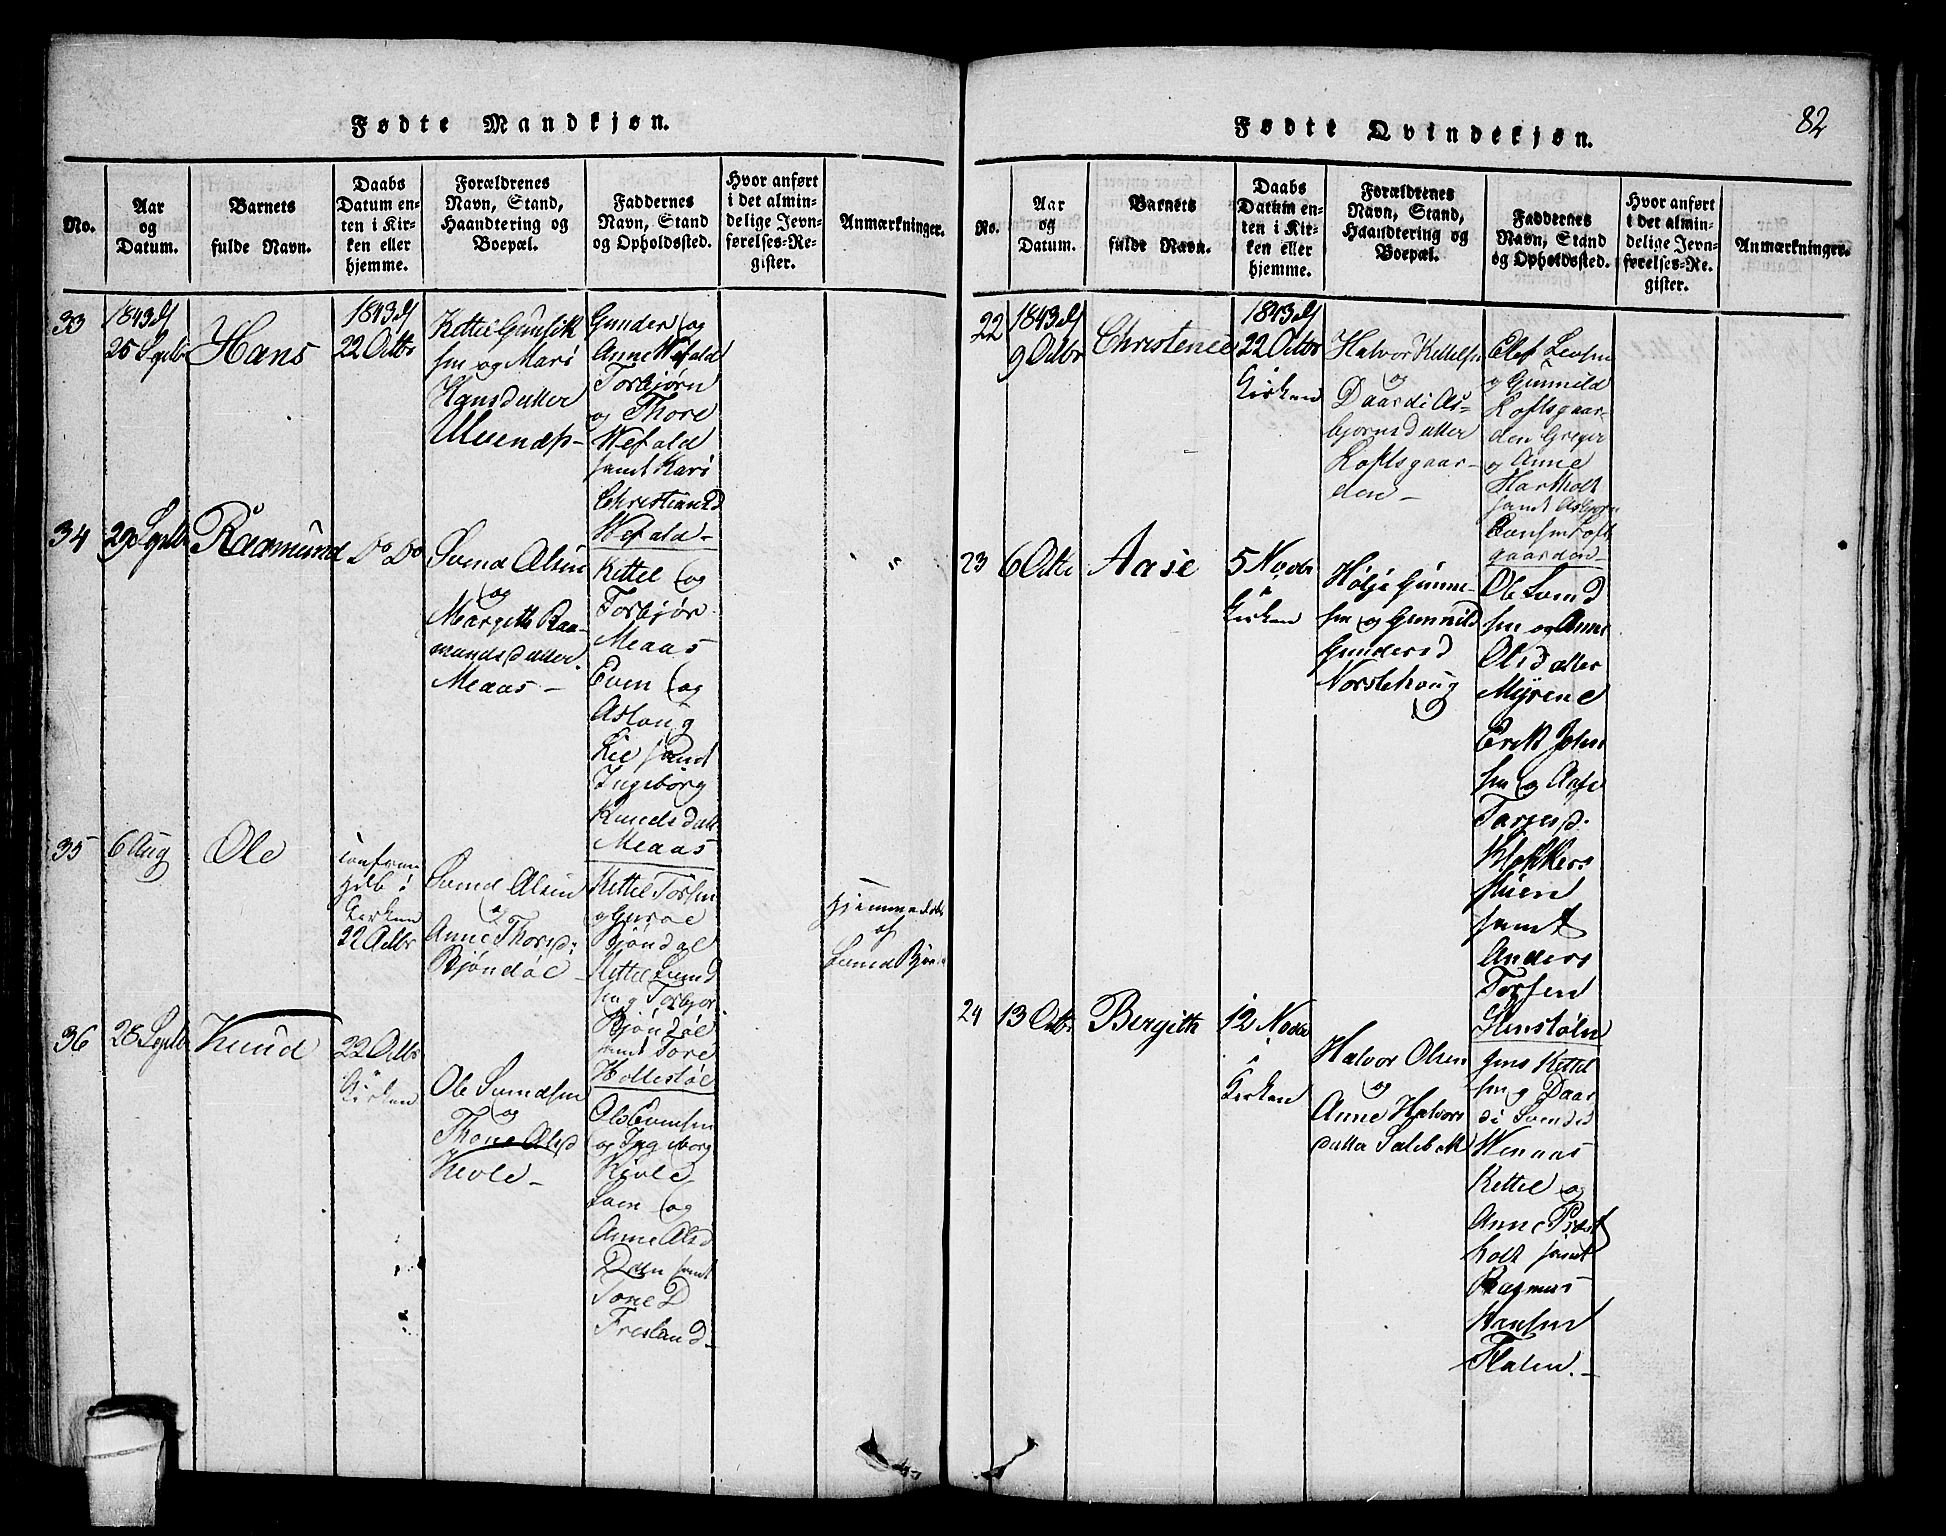 82
Fødte Mandkjøn.
No.
Aar
og
Datum.
Barnets
fulde Navn.
Daabs
Datum en-
ten i Kir-
ken eller
hjemme.
Forældrenes
Navn, Stand,
Haandtering og
Boepæl.
Faddernes
Navn, Stand
og Opholdssted.
Hvor anført
i det almin-
delige Jevn-
førelses-Re-
gister.
Anmærkninger.
33
1843 d/
25 Septbr
Hans
1843 d/
22 Octbr
Kittil Gunlik
sen og Mari
Hansdatter
Gunder og
Anne Wefald
Torbjørn
og Thore
Wefald
samt Kari
Christian D
Wefald
34
29 Septbr
Raamund
Do Do
Svend Olsen
og
Margith Raa-
mundsdatter
Meaas
Kittel og
Torbjør
Meaas
Even og
Aslaug
Lie samt
Ingeborg
Knudsdatt
Meaas
35
6 Aug
Ole
i
Kirken
22 Octbr
Svend Olsen
og
Anne Thorsd:
Bjöndal
Kittel Torsen
og Guroe
Bjöndal
Kittel Svend
sen og Torbjor
Bjöndal
samt Tore
Hollestöl
Hjemmedøbt
af
Svend
36
28 Septbr
Knud
22 Octbr
i
Kirken
Ole Svendsen
og
Thone Olsd
Kivle
Ole Evensen
og Ingeborg
Kivle
Sven og
Anne Olsd
samt
Tone D
Fresland
Fødte Qvindekjøn.
No.
Aar
og
Datum.
Barnets
fulde Navn.
Daabs
Datum en-
ten i Kir-
ken eller
hjemme.
Forældrenes
Navn, Stand,
Haandtering og
Boepæl.
Faddernes
Navn, Stand
og Opholdssted.
Hvor anført
i det almin-
delige Jevn-
førelses-Re-
gister.
Anmærkninger.
22
1843 d/
9 Octbr
Christence
1843 d/
22 Octbr
Kirken
Halvor Kittelsen
og
Daardi As-
bjørnsdatter
Loftsgaar-
den
Olef Levsen
og Gunnild
Loftsgaar-
den Greger
og Anne
Hartholt
samt Asbjør
Loft
gaarden
23
6 Octbr
Aase
5 Novbr
i
Kirken
Hølje Gunne-
sen og Gunnild
Gundersd
Norstehoug
Ole Svend
sen og Anne
Olsdatter
Myrene
Erik John
sen og Aase
Torgersd:
Klokkers
samt
Anders
Torsen
24
13 Octbr
Bergith
12 Novbr
i
Kirken
Halvor Olsen
og
Anne Halvors
datter Salebek
Jens Kittel
sen og Daar
di Svendsd
Wenaas
Kittel og
Anne
holt samt
Rasmus
Hansen
Flaten.